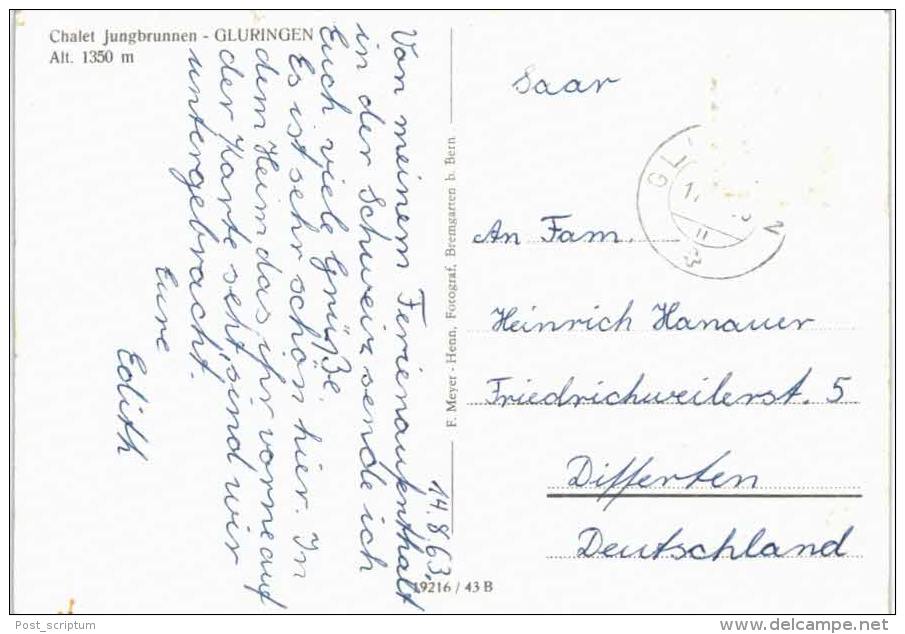 Chalet Jungbrunnen - GLURINGEN
Alt. 1350 m
14.8.63.
Von meinem Ferienaufenthalt
in der Schweiz sende ich
Euch viele Grüße.
Es ist sehr schön hier. In
dem Heim das ihr vorne auf
der Karte seht sind wir
untergebracht.
Eure
Edith
F. Meyer - Henn, Fotograf, Bremgarten b. Bern
19216 / 43 B
Saar
An Fam.
Heinrich Hanauer
Friedrichweilerst. 5
Differten
Deutschland
Post_scriptum
delcampe.net